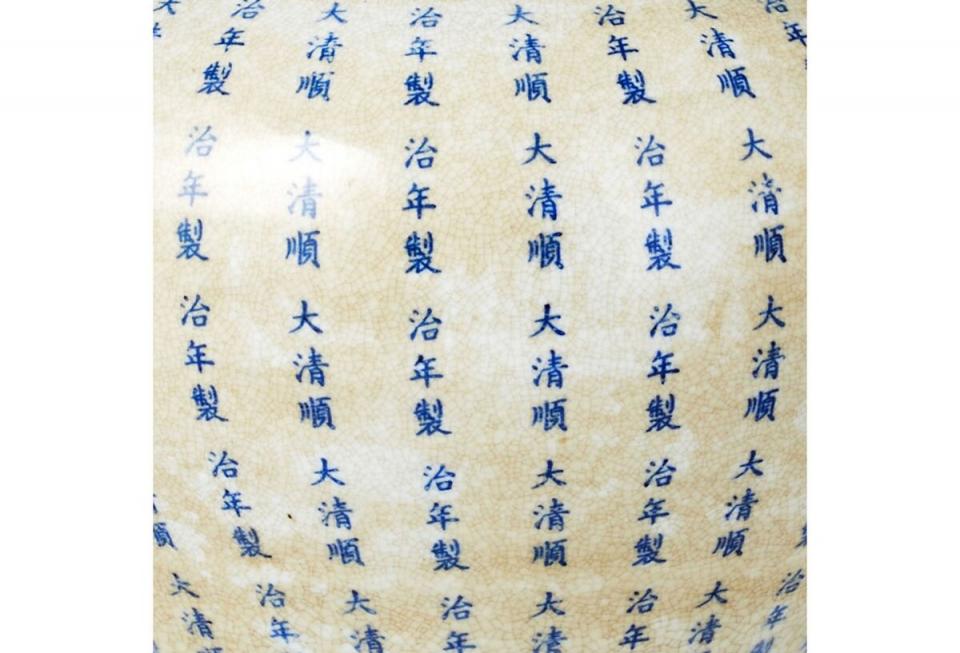 治年
大清順
治年製
大清順
治年製
大清順
治年製
大清順
治年製
大清順
治年製
大清順
治年製
大清順
治年製
大清順
治年製
大清順
治年製
大清順
治年製
大清順
治年製
大清順
治年製
治年
大清
治年
大清
治年
大清
治年
大清順